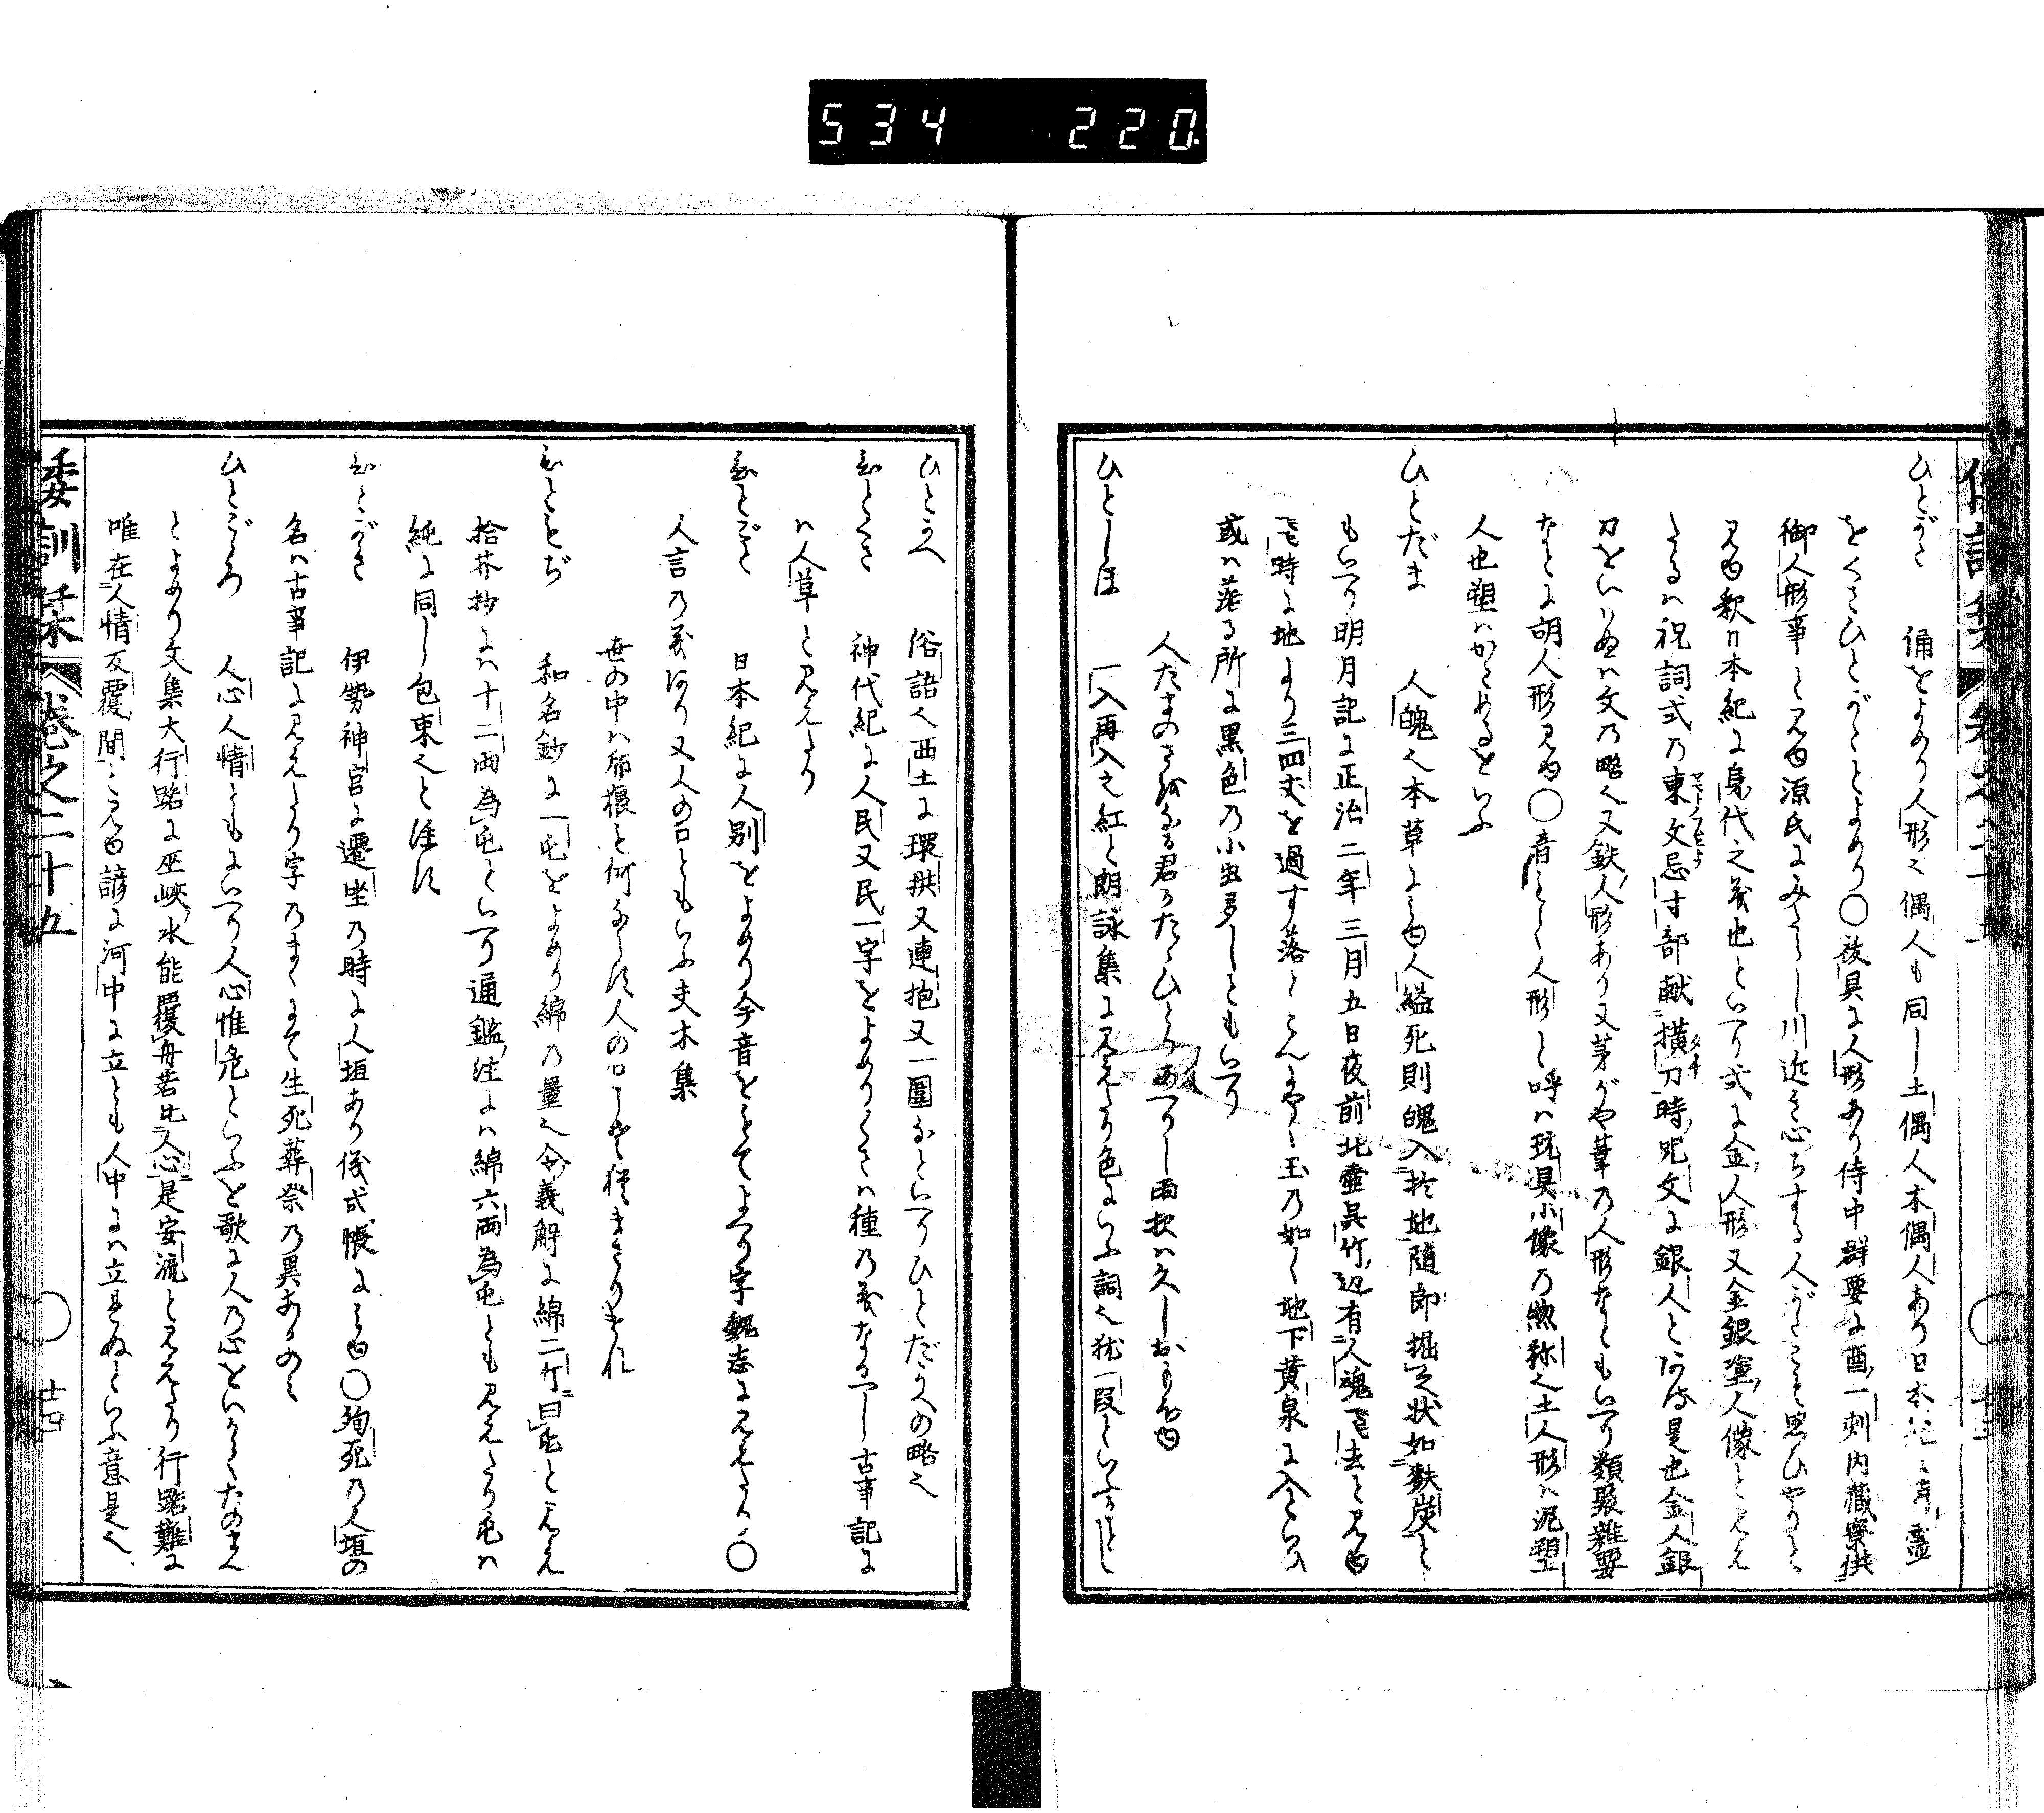 534 220
ひとがた 俑をよめり人形也偶人も同し土偶人木偶人あり日本紀に
をくさひとがたとよめり○祓具に人形あり侍中群要に酉一刻内蔵寮供
御人形事と見ゆ源氏にみたらし川近き心ちする人がたこそ思ひやりしか
見ゆ釈日本紀に身代之義也といへり式に金人形又金銀塗人像と見え
たるハ祝詞式乃東文忌寸部献横刀時呪文に銀人とあるは是也金人銀
刀をいハぬハ文乃略也又鉄人形あり又茅がや葦乃人形なともいへり類聚雑要
なとに胡人形見ゆ○音をとて人形と呼ハ玩具小像乃惣称也土人形ハ泥塑
人也塑ハかためるをいふ
ひとだま 人魄也本草に見ゆ人縊死則魄入於地随即掘之状如麩炭と
もいへり明月記に正治二年三月五日夜前北壺呉竹辺有人魂飛去と見ゆ
飛時に地より三四丈を過す落てこんにやく玉乃如く地下黄泉に入といひ
或ハ落る所に黒色乃小虫多しともいへり
人たまのさ青なる君かたゝひとりあへりし雨夜ハ久しおもほゆ
ひとしほ 一入再入之紅と朗詠集に見えたり色にいふ詞也猶一段といふかことし
ひとかへ 俗語也西土に環拱又連抱又一囲なといへりひとだかへの略也
ひとくさ 神代紀に人民又民一字をよめりくさハ種乃義なるへし古事記に
ハ人草と見えたり
ひとごと 日本紀に人別をよめり今音をもてよへり字魏志に見えたり○
人言乃義あり又人の口ともいふ夫木集
世の中ハ何ならす人の口こそ
ひともぢ 和名鈔に一屯をよめり綿乃量也令義解に綿二斤曰屯と見え
拾芥抄にハ十二両為屯といへり通鑑注にハ綿六両為屯とも見えたり屯ハ
純に同し包束也と注す
ひとがき 伊勢神宮に遷坐乃時に人垣あり儀式帳に見ゆ○殉死乃人垣の
名ハ古事記に見えたり字乃まゝにて生死葬祭乃異あるのミ
ひとごゝろ 人心人情ともにいへり人心惟危といふを歌に人乃心をいかてたのまん
とよめり文集大行路に巫峡水能覆舟若比人心是安流と見えたり行路難に
唯在人情反覆間と見ゆ諺に河中に立とも人中にハ立れぬといふ意是也
倭訓栞 巻之二十五 十四